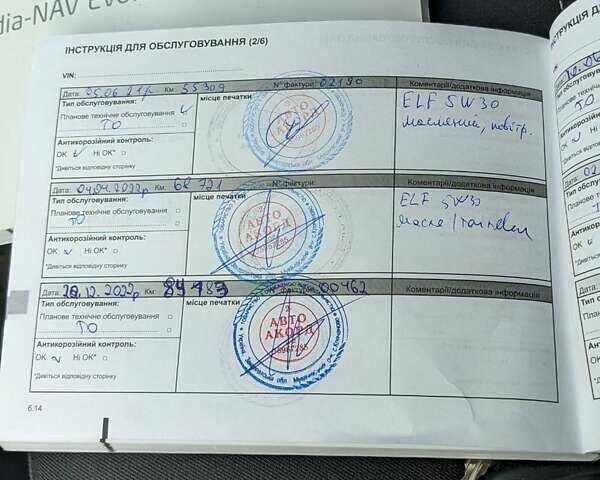 dia-NAV Evol
ІНСТРУКЦІЯ ДЛЯ ОБСЛУГОВУВАННЯ (2/6)
VIN:
Дата: 05.06 21р Км 55309 N° фактури: 02190
Тип обслуговування:
Планове технічне обслуговування
ТО
Антикорозійний контроль:
ОК Ні ОК*
*Дивіться відповідну сторінку
місце печатки
Коментарі/додаткова інформація
ELF 5W30
масляний, повітр.
Дата: 04.04.2022р Км: 68 721 N° фактури:
Тип обслуговування:
Планове технічне обслуговування
ТО
Антикорозійний контроль:
ОК Ні ОК*
*Дивіться відповідну сторінку
місце печатки
АВТО
АКОРД
Коментарі/додаткова інформація
ELF 5W30
масло/
Дата: 12.2022р Км: N° фактури: 00462
Тип обслуговування:
Планове технічне обслуговування
ТО
Антикорозійний контроль:
ОК Ні ОК*
*Дивіться відповідну сторінку
місце печатки
АВТО
АКОРД
Коментарі/додаткова інформація
6.14